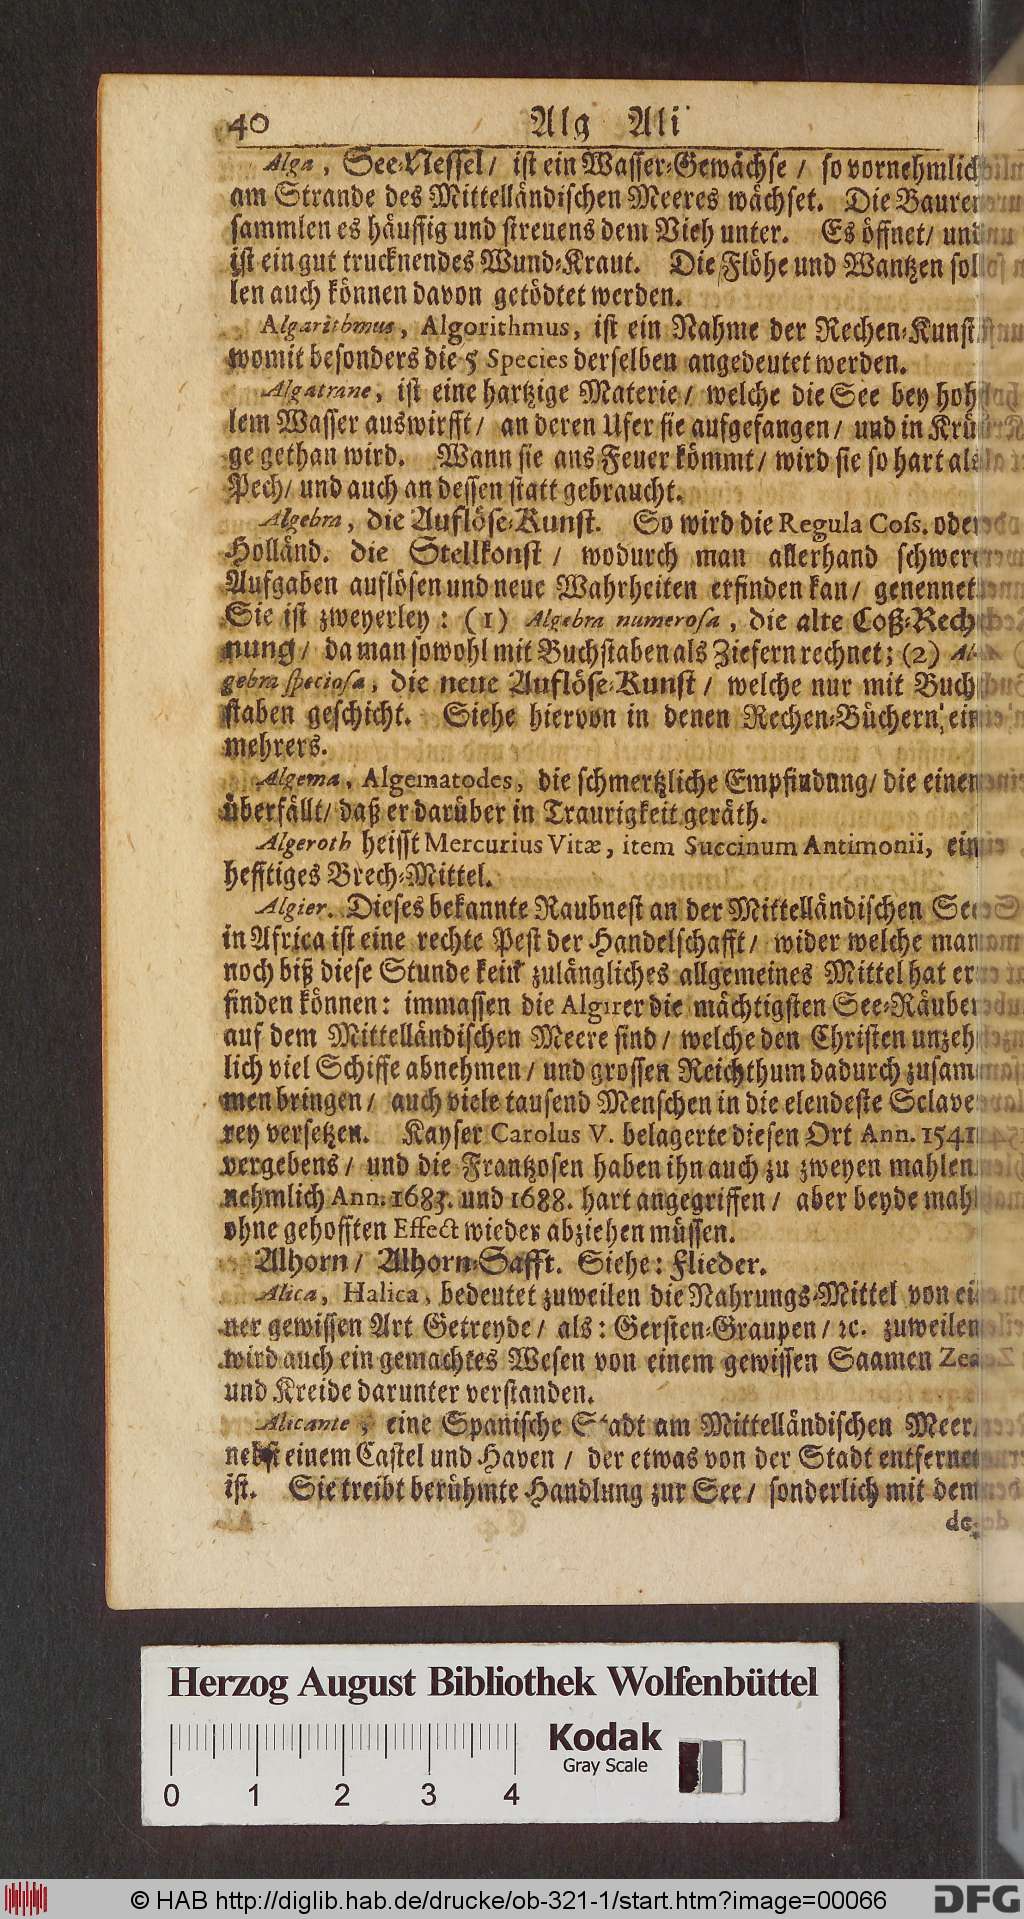 40 Alg Ali
Alga, See-Nessel/ ist ein Wasser-Gewächse/ so vornehmlich
am Strande des Mittelländischen Meeres wächset. Die Bauren
sammlen es häuffig und streuens dem Vieh unter. Es öffnet/ und
ist ein gut trucknendes Wund-Kraut. Die Flöhe und Wantzen sol
len auch können davon getödtet werden.
Algarithmus, Algorithmus, ist ein Nahme der Rechen-Kunst
womit besonders die 5 Species derselben angedeutet werden.
Algatrane, ist eine hartzige Materie/ welche die See bey hoh
lem Wasser auswirfft/ an deren Ufer sie aufgefangen/ und in Krü
ge gethan wird. Wann sie ans Feuer kömmt/ wird sie so hart als
Pech/ und auch an dessen statt gebraucht.
Algebra, die Auflöse-Kunst. So wird die Regula Coss. oder
Holländ. die Stellkonst/ wodurch man allerhand schwere
Aufgaben auflösen und neue Wahrheiten erfinden kan/ genennet.
Sie ist zweyerley: (1) Algebra numerosa, die alte Coß-Rech
nung/ da man sowohl mit Buchstaben als Ziefern rechnet; (2) Al-
gebra speciosa, die neue Auflöse-Kunst/ welche nur mit Buch
staben geschicht. Siehe hiervon in denen Rechen-Büchern ein
mehrers.
Algema, Algematodes, die schmertzliche Empfindung/ die einen
überfällt/ daß er darüber in Traurigkeit geräth.
Algeroth heisst Mercurius Vitæ, item Succinum Antimonii, ein
hefftiges Brech-Mittel.
Algier. Dieses bekannte Raubnest an der Mittelländischen See
in Africa ist eine rechte Pest der Handelschafft/ wider welche man
noch biß diese Stunde kein zulängliches allgemeines Mittel hat er
finden können: immassen die Algirer die mächtigsten See-Räuber
auf dem Mittelländischen Meere sind/ welche den Christen unzeh
lich viel Schiffe abnehmen/ und grossen Reichthum dadurch zusam
men bringen/ auch viele tausend Menschen in die elendeste Sclave
rey versetzen. Kayser Carolus V. belagerte diesen Ort Ann. 1541
vergebens/ und die Frantzosen haben ihn auch zu zweyen mahlen
nehmlich Ann. 1683. und 1688. hart angegriffen/ aber beyde mahl
ohne gehofften Effect wieder abziehen müssen.
Alhorn/ Alhorn-Safft. Siehe: Flieder.
Alica, Halica, bedeutet zuweilen die Nahrungs-Mittel von ei
ner gewissen Art Getreyde/ als: Gersten-Graupen/ ꝛc. zuweilen
wird auch ein gemachtes Wesen von einem gewissen Saamen Zea
und Kreide darunter verstanden.
Alicante, eine Spanische Stadt am Mittelländischen Meer,
nebst einem Castel und Haven/ der etwas von der Stadt entfernet
ist. Sie treibt berühmte Handlung zur See/ sonderlich mit dem
de-
Herzog August Bibliothek Wolfenbüttel
Kodak
Gray Scale
0 1 2 3 4
© HAB http://diglib.hab.de/drucke/ob-321-1/start.htm?image=00066
DFG